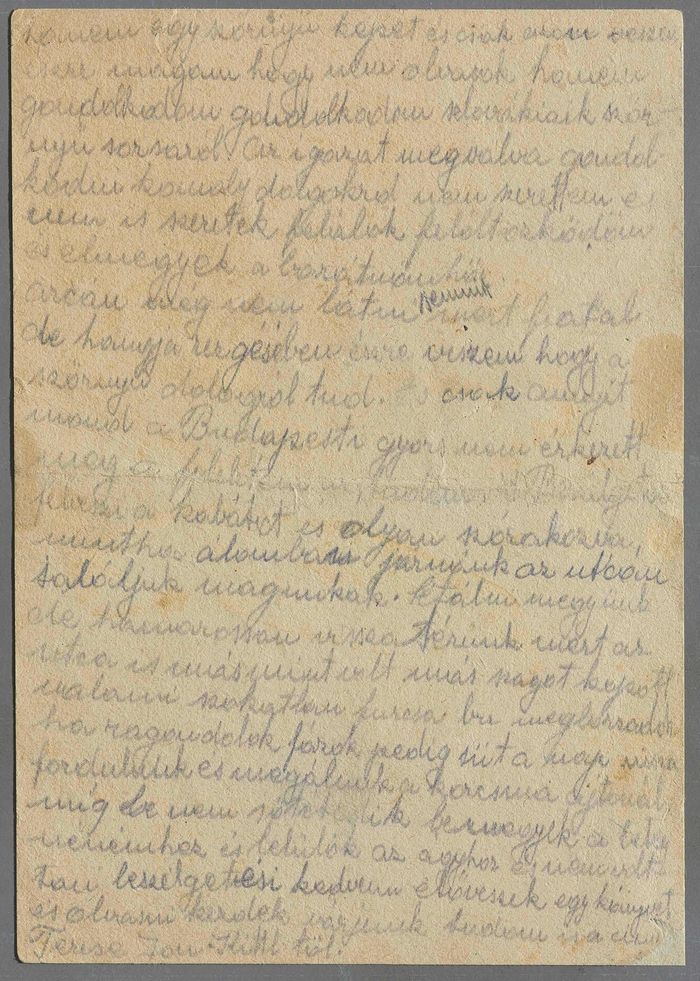 hanem egy szörnyü képet és csak azon veszem
észre magam hogy nem olvasok hanem
gondolkodom gondolkodom szlovákiaik ször-
nyü sorsaról. Az igazat megvalva gondol-
kodni komoly dolgokrol nem szerettem és
nem is szeretek felülök felöltözködöm
és elmegyek a barátnömhöz.
arcán még nem látni semmit mert fiatal
de hangja rezgésében észre veszem hogy a
szörnyü dologrol tud. És csak annyit
mond a Budapesti gyors nem érkezett
meg a
felveszi a kabátot es olyan szórakozva,
mintha álomban járnánk az utcán
találjuk magunkat. Sétálni megyünk
de hamarossan vissza térünk mert az
utca is más mint volt más szagot kapott
valami szokatlan furcsa
ha ragondolok fázok pedig süt a nap vissza
fordulunk es megálunk a korcsma ajtonál
míg be nem sötetedik bemegyek a
nénémhez és leülök az agyhoz és nem volt
tani beszélgetési kedvem elöveszek egy könyvet
és olvasni kezdek várjunk tudom is a cimét
Terise Jon Kittl töl.